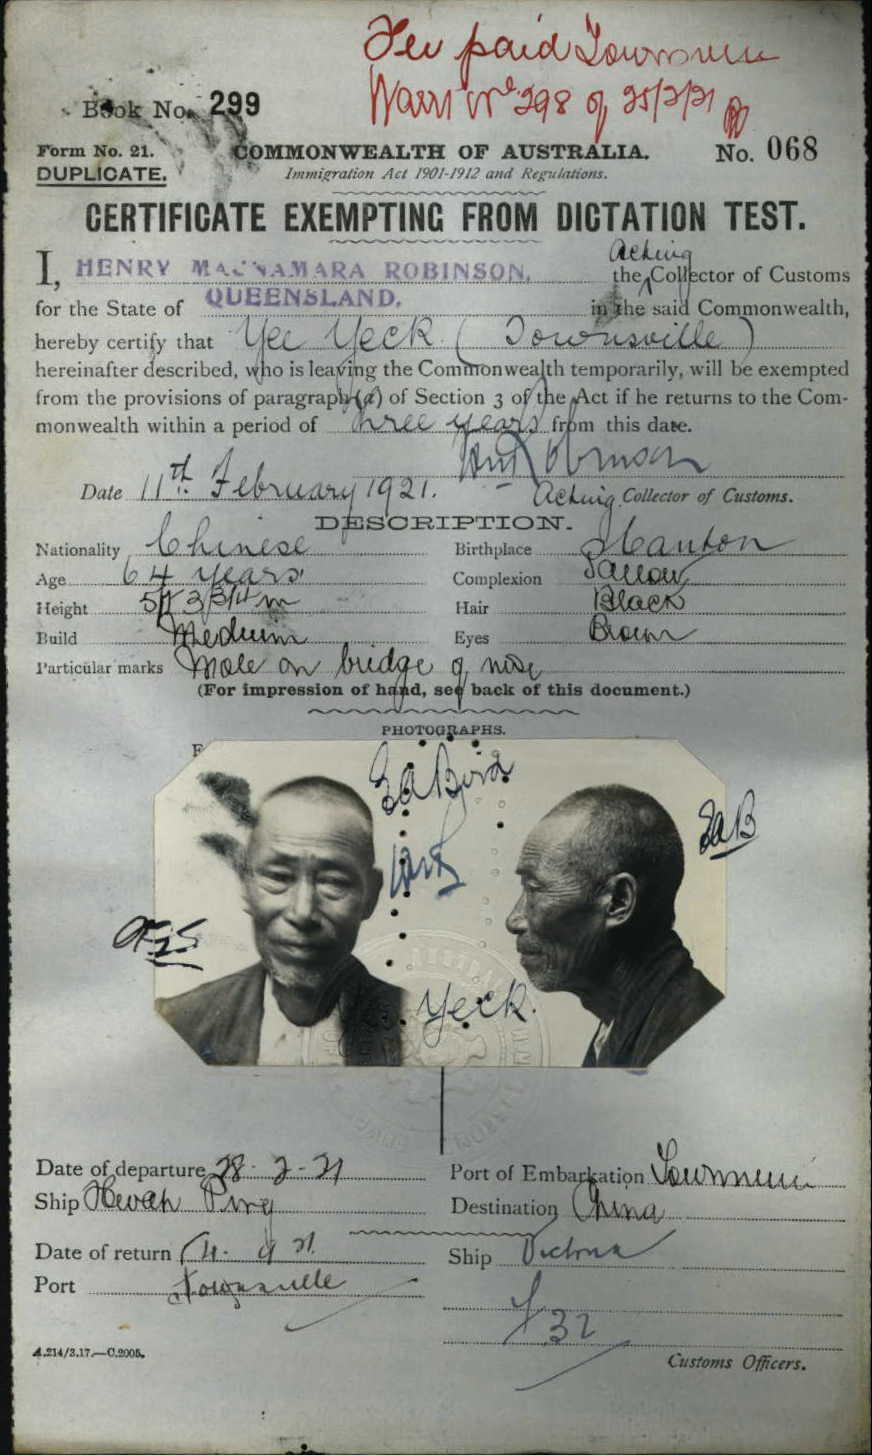 Fee paid Townsville
Warrt No. 298 of 25/2/21
Book No. 299
Form No. 21.
COMMONWEALTH OF AUSTRALIA.
No. 068
DUPLICATE.
Immigration Act 1901-1912 and Regulations.
CERTIFICATE EXEMPTING FROM DICTATION TEST.
Acting
I, HENRY MACNAMARA ROBINSON, the Collector of Customs
for the State of QUEENSLAND, in the said Commonwealth,
hereby certify that Yee Yeck (Townsville)
hereinafter described, who is leaving the Commonwealth temporarily, will be exempted
from the provisions of paragraph (a) of Section 3 of the Act if he returns to the Com-
monwealth within a period of three years from this date.
Date 11th February 1921. Acting Collector of Customs.
DESCRIPTION.
Nationality Chinese Birthplace Canton
Age 64 years Complexion Sallow
Height 5ft 3 3/4 in Hair Black
Build Medium Eyes Brown
Particular marks Mole on bridge of nose
(For impression of hand, see back of this document.)
PHOTOGRAPHS.
F
Yeck.
Date of departure 28-2-21 Port of Embarkation Townsville
Ship Hwah Ping Destination China
Date of return Ship Victoria
Port Townsville
32
A.214/3.17.—C.2005.
Customs Officers.